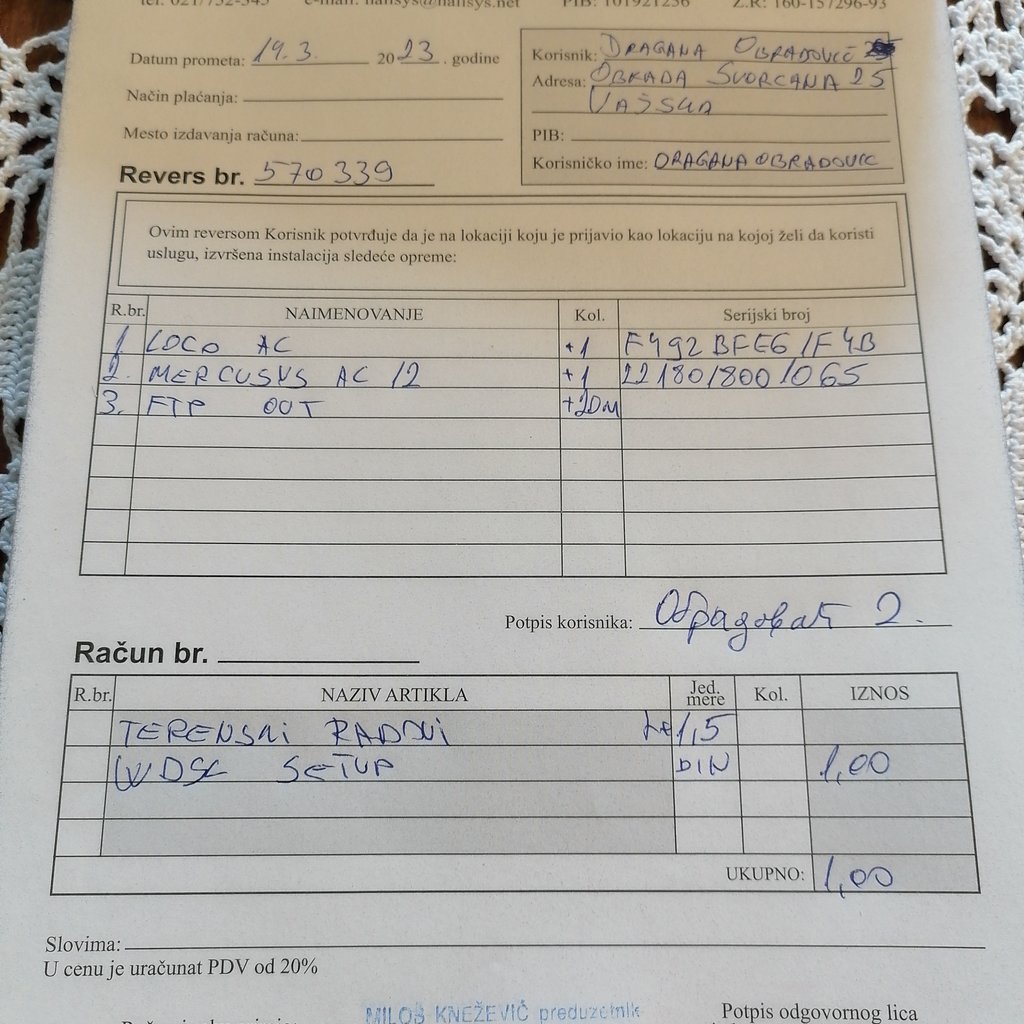 tel. 021/752-545 e-mail: hansys@hansys.net PIB: 101921236 Ž.R: 160-157296-93
Datum prometa: 19.3. 2023. godine
Način plaćanja:
Mesto izdavanja računa:
Revers br. 570339
Korisnik: DRAGANA OBRADOVIĆ
Adresa: OBRADA SVORCANA 25
VAŠSKA
PIB:
Korisničko ime: DRAGANAOBRADOVIC
Ovim reversom Korisnik potvrđuje da je na lokaciji koju je prijavio kao lokaciju na kojoj želi da koristi
uslugu, izvršena instalacija sledeće opreme:
R.br. NAIMENOVANJE Kol. Serijski broj
1. LOCO AC +1 F492BFE61F4B
2. MERCUSYS AC12 +1 2218018001065
3. FTP OUT +20m
Potpis korisnika: Обрадовић Д.
Račun br.
R.br. NAZIV ARTIKLA Jed. mere Kol. IZNOS
TERENSKI RADOVI 1,5
WDSL SETUP DIN 1,00
UKUPNO: 1,00
Slovima:
U cenu je uračunat PDV od 20%
MILOŠ KNEŽEVIĆ preduzetnik
Potpis odgovornog lica